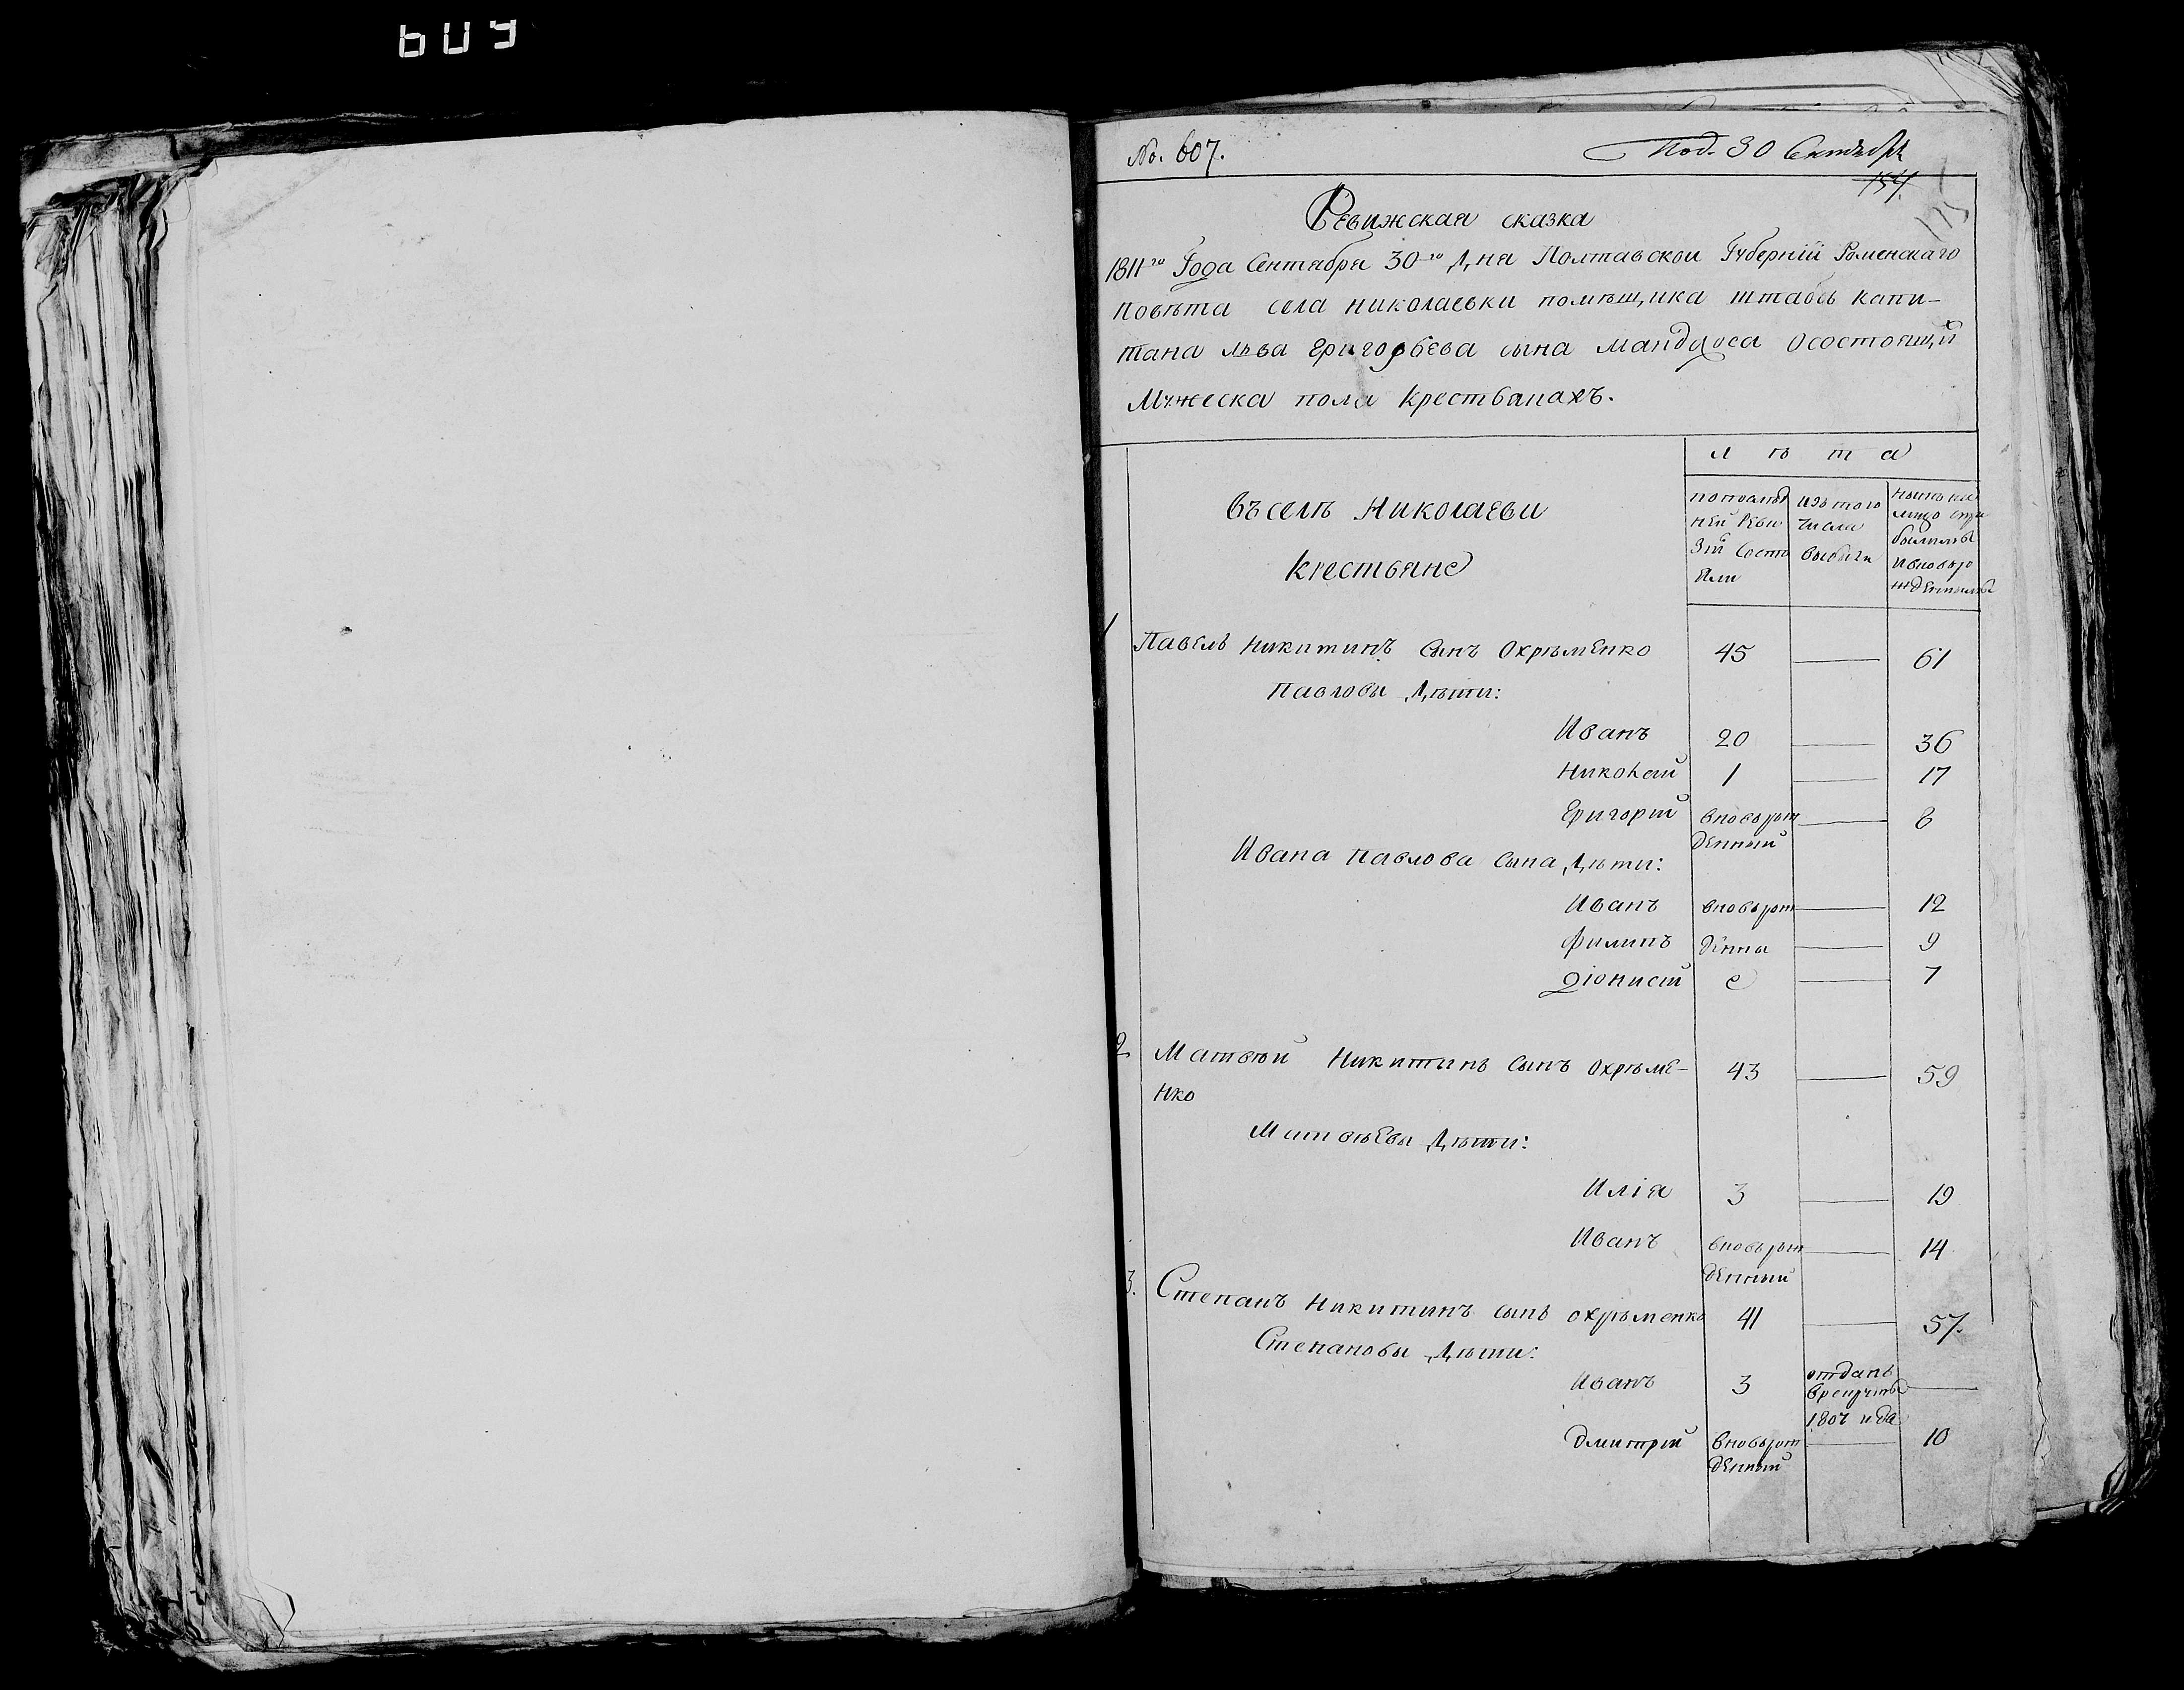 609
No. 607.
Под. 30 Сентября
154.
115
Ревижская сказка
1811го Года Сентября 30го Дня Полтавской Губерніи Роменскаго
повѣта села николаевки помѣщика штабсъ капи-
тана льва григорьева сына мандроса о состоящихъ
Мужеска пола крестьянахъ.
лѣта
въселѣ Николаевки
крестьяне
попослѣд
ней Реви
зіи Состо
яли
изътого
числа
выбыли
нынѣ на
лицо
сприбылыми
ивновьро
жденными
1
Павелъ Никитинъ Сынъ Охрѣменко 45 — 61
Павловы Дѣти:
Иванъ 20 — 36
Николай 1 — 17
Григорій вновьрож — 8
денный
Ивана Павлова Сына Дѣти:
Иванъ вновьрож — 12
Филипъ денны — 9
Діонисій е — 7
2 Матвѣй Никитинъ Сынъ Охрѣме- 43 — 59
нко
Матвѣевы Дѣти:
Илія 3 — 19
Иванъ вновьрож — 14
денный
3. Степанъ Никитинъ Сынъ охрѣменко 41 — 57.
Степановы Дѣти:
Иванъ 3 отданъ —
врекруты
года
Дмитрій вновьрож — 10
денный